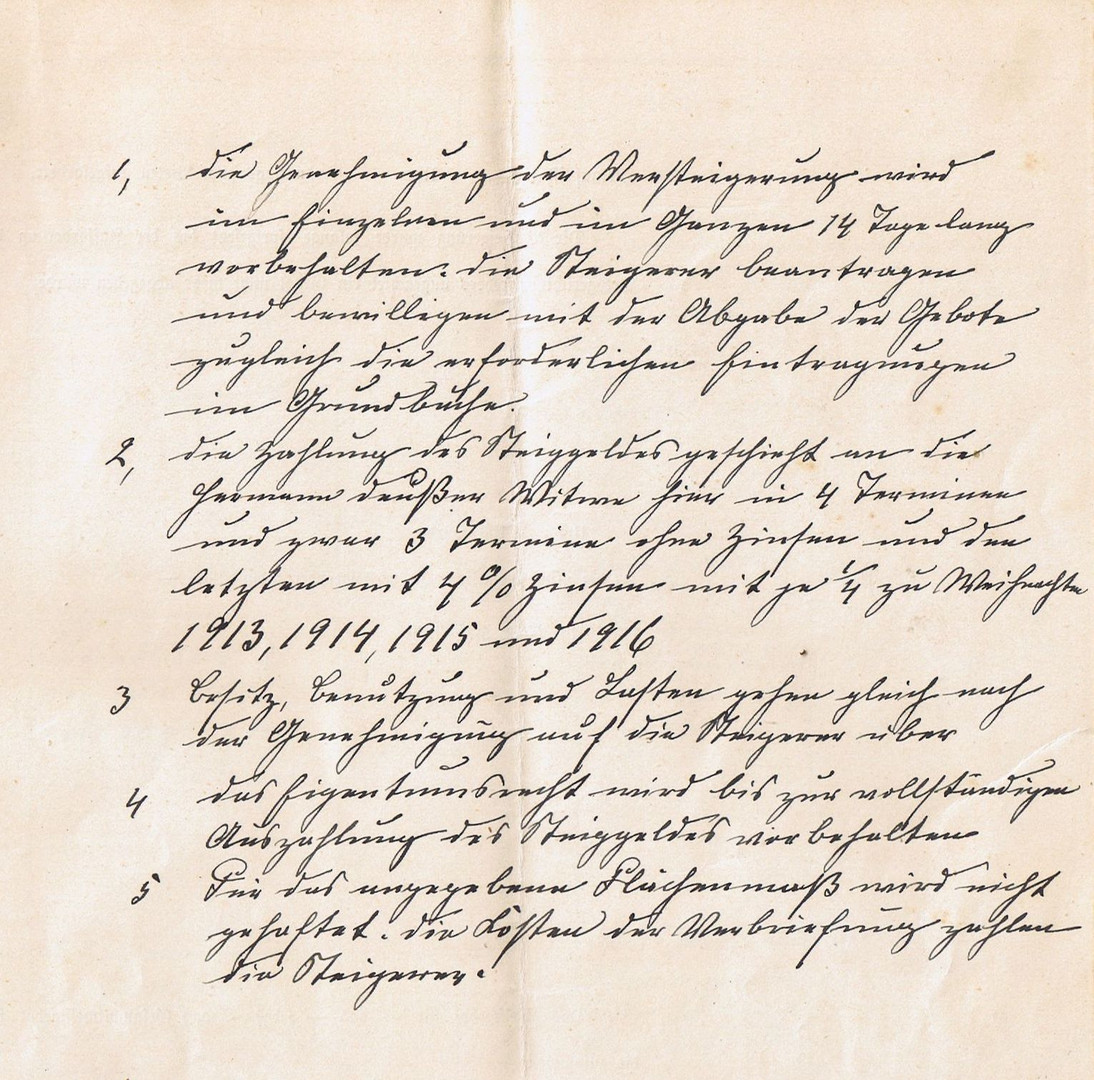 1, die Genehmigung der Versteigerung wird
im Einzelnen und im Ganzen 14 Tage lang
vorbehalten. die Steigerer beantragen
und bewilligen mit der Abgabe der Gebote
zugleich die erforderlichen Eintragungen
im Grundbuche.
2, die Zahlung des Steiggeldes geschieht an die
Hermann Deußer Witwe hier in 4 Terminen
und zwar 3 Termine ohne Zinsen und den
letzten mit 4 % Zinsen mit je 1/4 zu Weihnachten
1913, 1914, 1915 und 1916
3 Besitz, Benützung und Lasten gehen gleich nach
der Genehmigung auf die Steigerer über
4 das Eigentumsrecht wird bis zur vollständigen
Auszahlung des Steiggeldes vorbehalten
5 Für das angegebene Flächenmaß wird nicht
gehaftet. die Kosten der Verbriefung zahlen
die Steigerer.